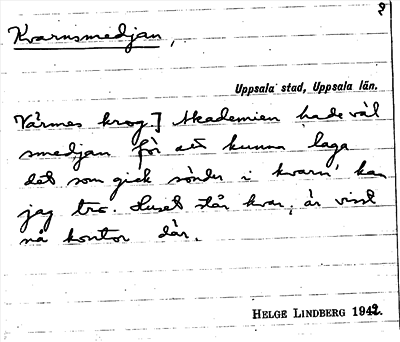 Kvarnsmedjan,
Uppsala stad, Uppsala län.
Värmes krog.] Akademien hade väl
smedjan för att kunna laga
det som gick sönder i kvarn' kan
jag tro. Huset står kvar, är visst
nå kontor där.
HELGE LINDBERG 1942.